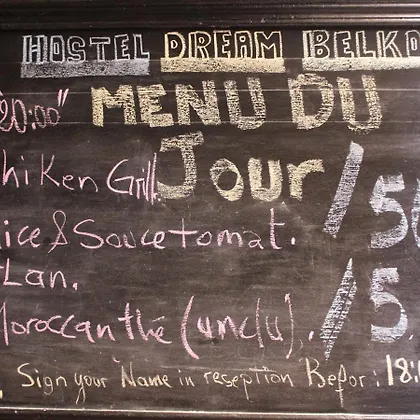 HOSTEL DREAM BELKO
"20:00" MENU DU
Jour
hiKen Grill. / 50
ice & Souce tomat.
Lan.
Moroccan thé (unclu). / 5
Sign your Name in reseption Befor: 18: